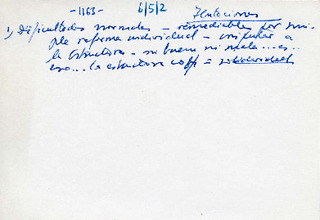 -1163- 6/5/2 Tentaciones
1) Dificultades normales = remediables por sim-
ple reforma individual = imputar a
la estructura = ni buena ni mala... es...
eso... la estructura